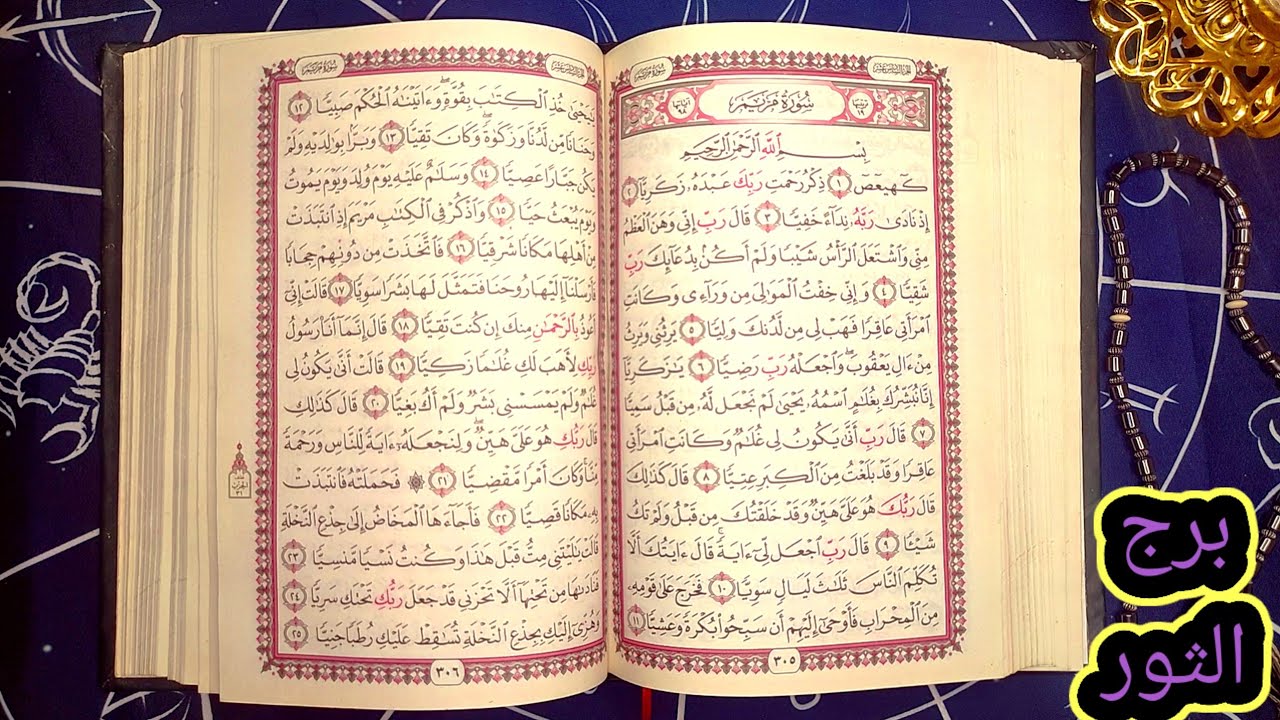 سُورَةُ مَرْيَمَ
بِسْمِ ٱللَّهِ ٱلرَّحْمَٰنِ ٱلرَّحِيمِ
كٓهيعٓصٓ ١ ذِكْرُ رَحْمَتِ رَبِّكَ عَبْدَهُۥ زَكَرِيَّآ ٢
إِذْ نَادَىٰ رَبَّهُۥ نِدَآءً خَفِيًّا ٣ قَالَ رَبِّ إِنِّى وَهَنَ ٱلْعَظْمُ
مِنِّى وَٱشْتَعَلَ ٱلرَّأْسُ شَيْبًا وَلَمْ أَكُنۢ بِدُعَآئِكَ رَبِّ
شَقِيًّا ٤ وَإِنِّى خِفْتُ ٱلْمَوَٰلِىَ مِن وَرَآءِى وَكَانَتِ
ٱمْرَأَتِى عَاقِرًا فَهَبْ لِى مِن لَّدُنكَ وَلِيًّا ٥ يَرِثُنِى وَيَرِثُ
مِنْ ءَالِ يَعْقُوبَ ۖ وَٱجْعَلْهُ رَبِّ رَضِيًّا ٦ يَٰزَكَرِيَّآ
إِنَّا نُبَشِّرُكَ بِغُلَٰمٍ ٱسْمُهُۥ يَحْيَىٰ لَمْ نَجْعَل لَّهُۥ مِن قَبْلُ سَمِيًّا
٧ قَالَ رَبِّ أَنَّىٰ يَكُونُ لِى غُلَٰمٌ وَكَانَتِ ٱمْرَأَتِى
عَاقِرًا وَقَدْ بَلَغْتُ مِنَ ٱلْكِبَرِ عِتِيًّا ٨ قَالَ كَذَٰلِكَ
قَالَ رَبُّكَ هُوَ عَلَىَّ هَيِّنٌ وَقَدْ خَلَقْتُكَ مِن قَبْلُ وَلَمْ تَكُ
شَيْـًٔا ٩ قَالَ رَبِّ ٱجْعَل لِّىٓ ءَايَةً ۚ قَالَ ءَايَتُكَ أَلَّا
تُكَلِّمَ ٱلنَّاسَ ثَلَٰثَ لَيَالٍ سَوِيًّا ١٠ فَخَرَجَ عَلَىٰ قَوْمِهِۦ
مِنَ ٱلْمِحْرَابِ فَأَوْحَىٰٓ إِلَيْهِمْ أَن سَبِّحُوا۟ بُكْرَةً وَعَشِيًّا ١١
٣٠٥
سُورَةُ مَرْيَمَ
يَٰيَحْيَىٰ خُذِ ٱلْكِتَٰبَ بِقُوَّةٍ ۖ وَءَاتَيْنَٰهُ ٱلْحُكْمَ صَبِيًّا ١٢
وَحَنَانًا مِّن لَّدُنَّا وَزَكَوٰةً ۖ وَكَانَ تَقِيًّا ١٣ وَبَرًّۢا بِوَٰلِدَيْهِ وَلَمْ
يَكُن جَبَّارًا عَصِيًّا ١٤ وَسَلَٰمٌ عَلَيْهِ يَوْمَ وُلِدَ وَيَوْمَ يَمُوتُ
وَيَوْمَ يُبْعَثُ حَيًّا ١٥ وَٱذْكُرْ فِى ٱلْكِتَٰبِ مَرْيَمَ إِذِ ٱنتَبَذَتْ
مِنْ أَهْلِهَا مَكَانًا شَرْقِيًّا ١٦ فَٱتَّخَذَتْ مِن دُونِهِمْ حِجَابًا
فَأَرْسَلْنَآ إِلَيْهَا رُوحَنَا فَتَمَثَّلَ لَهَا بَشَرًا سَوِيًّا ١٧ قَالَتْ إِنِّىٓ
أَعُوذُ بِٱلرَّحْمَٰنِ مِنكَ إِن كُنتَ تَقِيًّا ١٨ قَالَ إِنَّمَآ أَنَا۠ رَسُولُ
رَبِّكِ لِأَهَبَ لَكِ غُلَٰمًا زَكِيًّا ١٩ قَالَتْ أَنَّىٰ يَكُونُ لِى
غُلَٰمٌ وَلَمْ يَمْسَسْنِى بَشَرٌ وَلَمْ أَكُ بَغِيًّا ٢٠ قَالَ كَذَٰلِكِ
قَالَ رَبُّكِ هُوَ عَلَىَّ هَيِّنٌ ۖ وَلِنَجْعَلَهُۥٓ ءَايَةً لِّلنَّاسِ وَرَحْمَةً
مِّنَّا ۚ وَكَانَ أَمْرًا مَّقْضِيًّا ٢١ ۞ فَحَمَلَتْهُ فَٱنتَبَذَتْ
بِهِۦ مَكَانًا قَصِيًّا ٢٢ فَأَجَآءَهَا ٱلْمَخَاضُ إِلَىٰ جِذْعِ ٱلنَّخْلَةِ
قَالَتْ يَٰلَيْتَنِى مِتُّ قَبْلَ هَٰذَا وَكُنتُ نَسْيًا مَّنسِيًّا ٢٣
فَنَادَىٰهَا مِن تَحْتِهَآ أَلَّا تَحْزَنِى قَدْ جَعَلَ رَبُّكِ تَحْتَكِ سَرِيًّا ٢٤
وَهُزِّىٓ إِلَيْكِ بِجِذْعِ ٱلنَّخْلَةِ تُسَٰقِطْ عَلَيْكِ رُطَبًا جَنِيًّا ٢٥
٣٠٦
برج
الثور